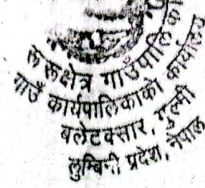 रुरुक्षेत्र गाउँपालिका
गाउँ कार्यपालिकाको कार्यालय
वलेटक्सार, गुल्मी
लुम्बिनी प्रदेश, नेपाल